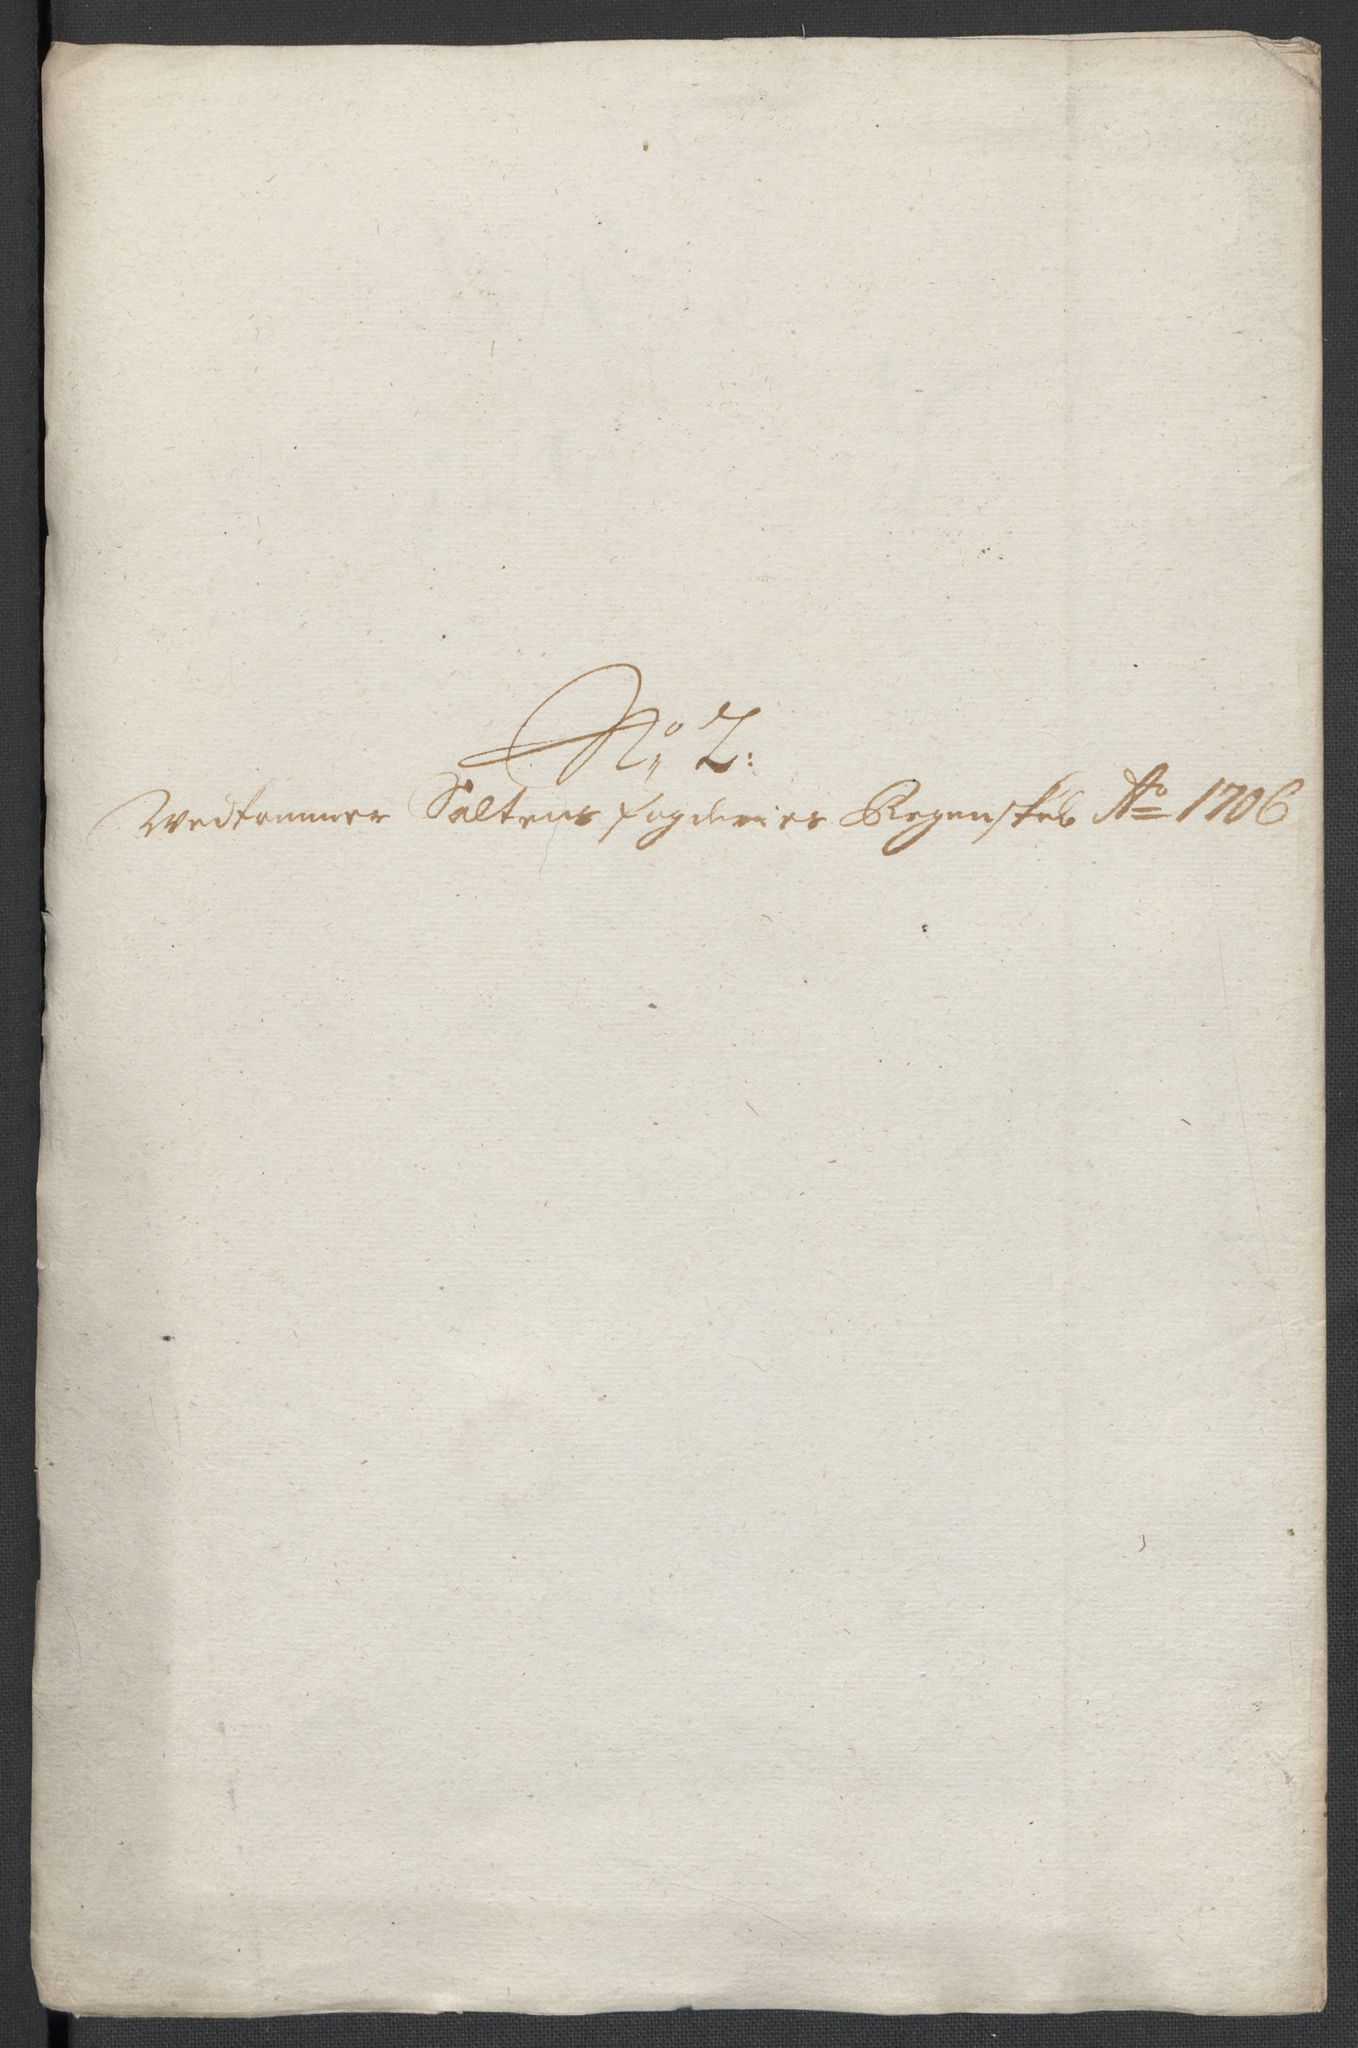 No 2:
Vedkommer Saltens fogderies Regenskab Ao 1706